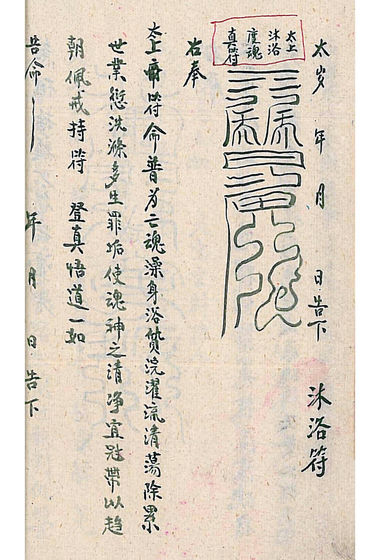 太岁 年 月 日告下 沐浴符
太上
沐浴
度魂
真符
右奉
太上 符命普为亡魂澡身浴 浣濯流清荡除累
世業愆洗滌多生罪垢使魂神之清净宜冠带以趋
朝佩戒持符 登真悟道一如
告命 年 月 日告下